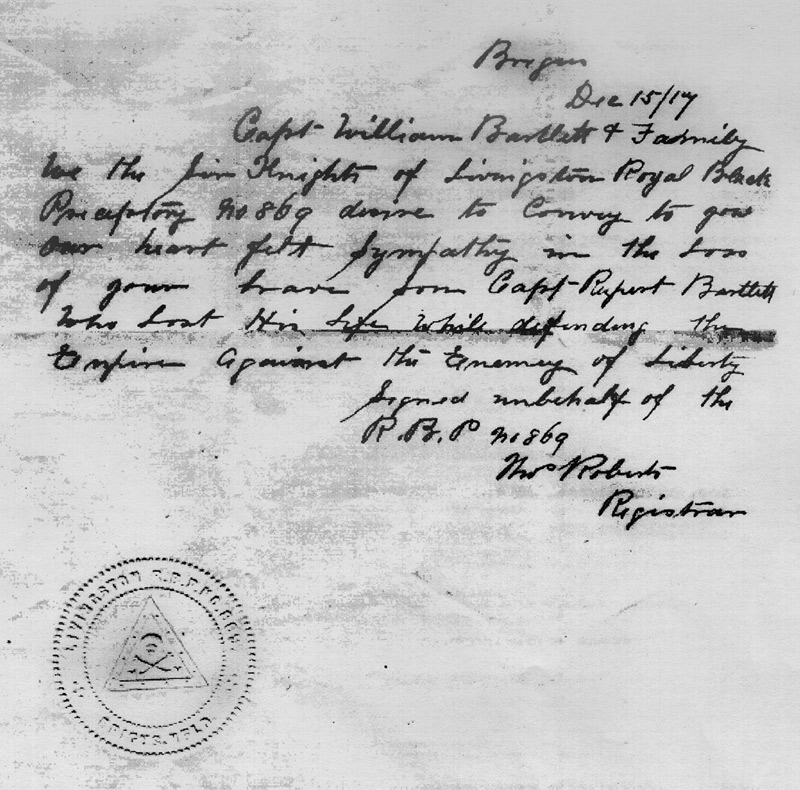 Brigus
Dec 15/17
Capt William Bartlett & Family
We the Sir Knights of Livingston Royal Black
Preceptory No 869 desire to Convey to you
our heart felt Sympathy in the Loss
of your brave son Capt Rupert Bartlett
Who Lost His Life While defending the
Empire Against the Enemey of Liberty
Signed unbehalf of the
R.B.P no 869
Thos Roberts
Registrar
LIVINGSTON R.B.P. NO. 869
BRIGUS. NFLD.